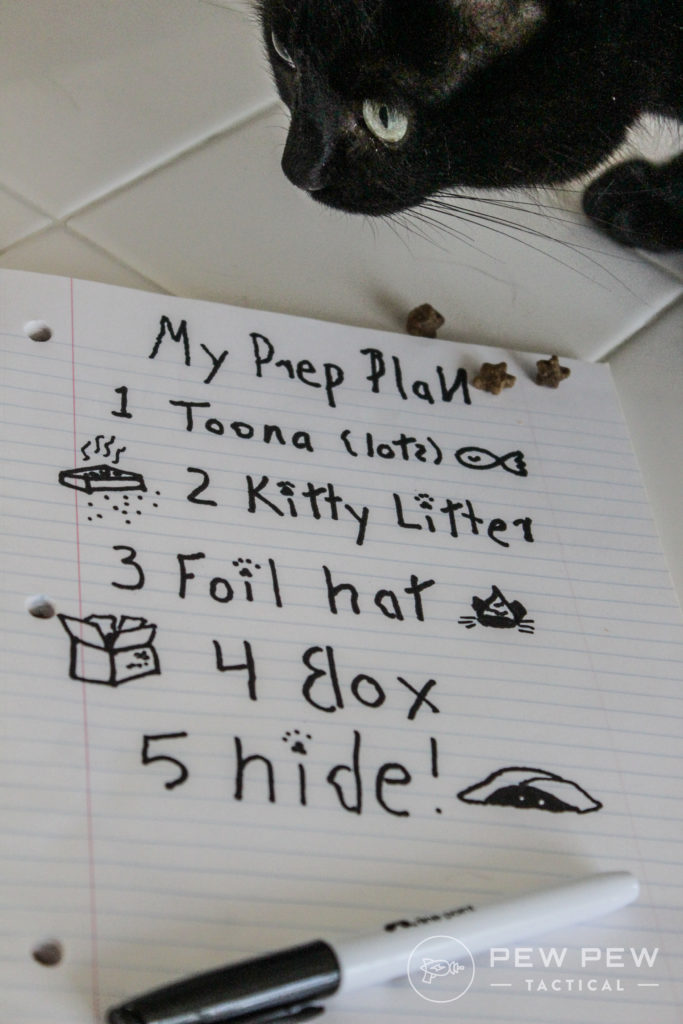 My Prep Plan
1 Toona (lots)
2 Kitty Litter
3 Foil hat
4 Box
5 hide!
PEW PEW
TACTICAL